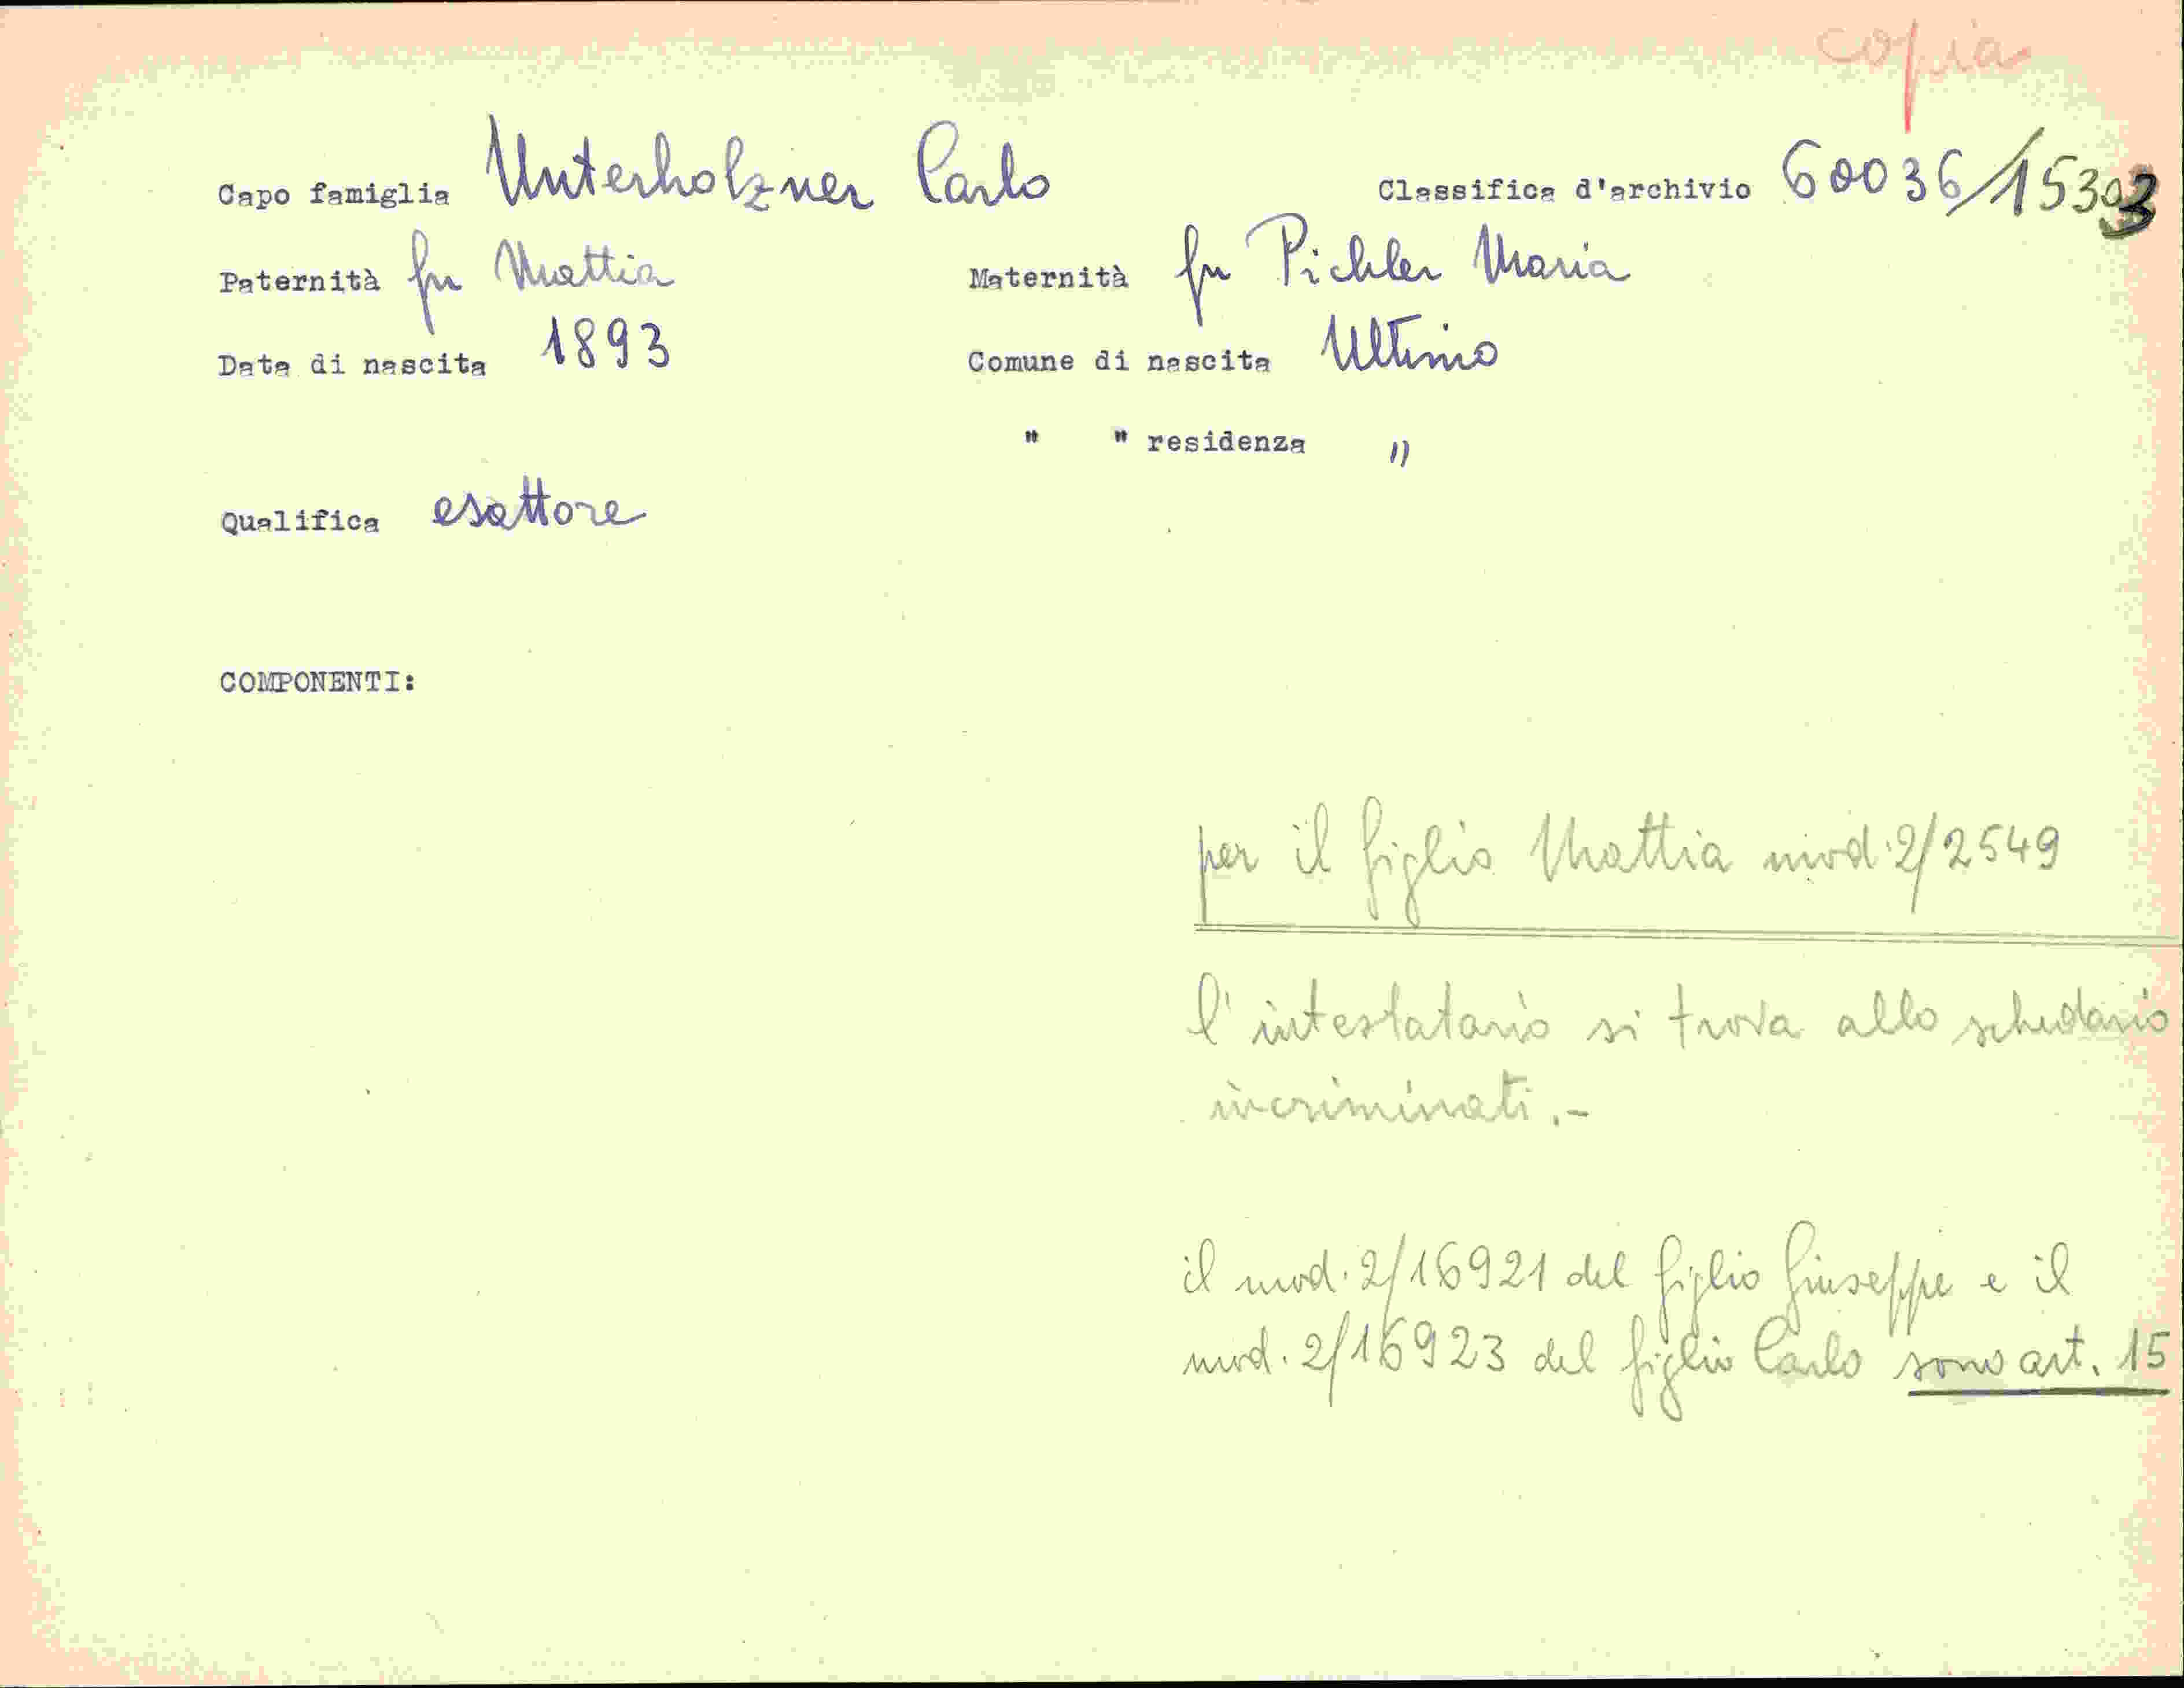 copia
Capo famiglia Unterholzner Carlo Classifica d'archivio 60036/15303
Paternità fu Mattia Maternità fu Pichler Maria
Data di nascita 1893 Comune di nascita Ultimo
" " residenza "
Qualifica esattore
COMPONENTI:
per il figlio Mattia mod. 2/2549
l'intestatario si trova allo schedario
incriminati.-
il mod. 2/16921 del figlio Giuseppe e il
mod. 2/16923 del figlio Carlo sono art. 15